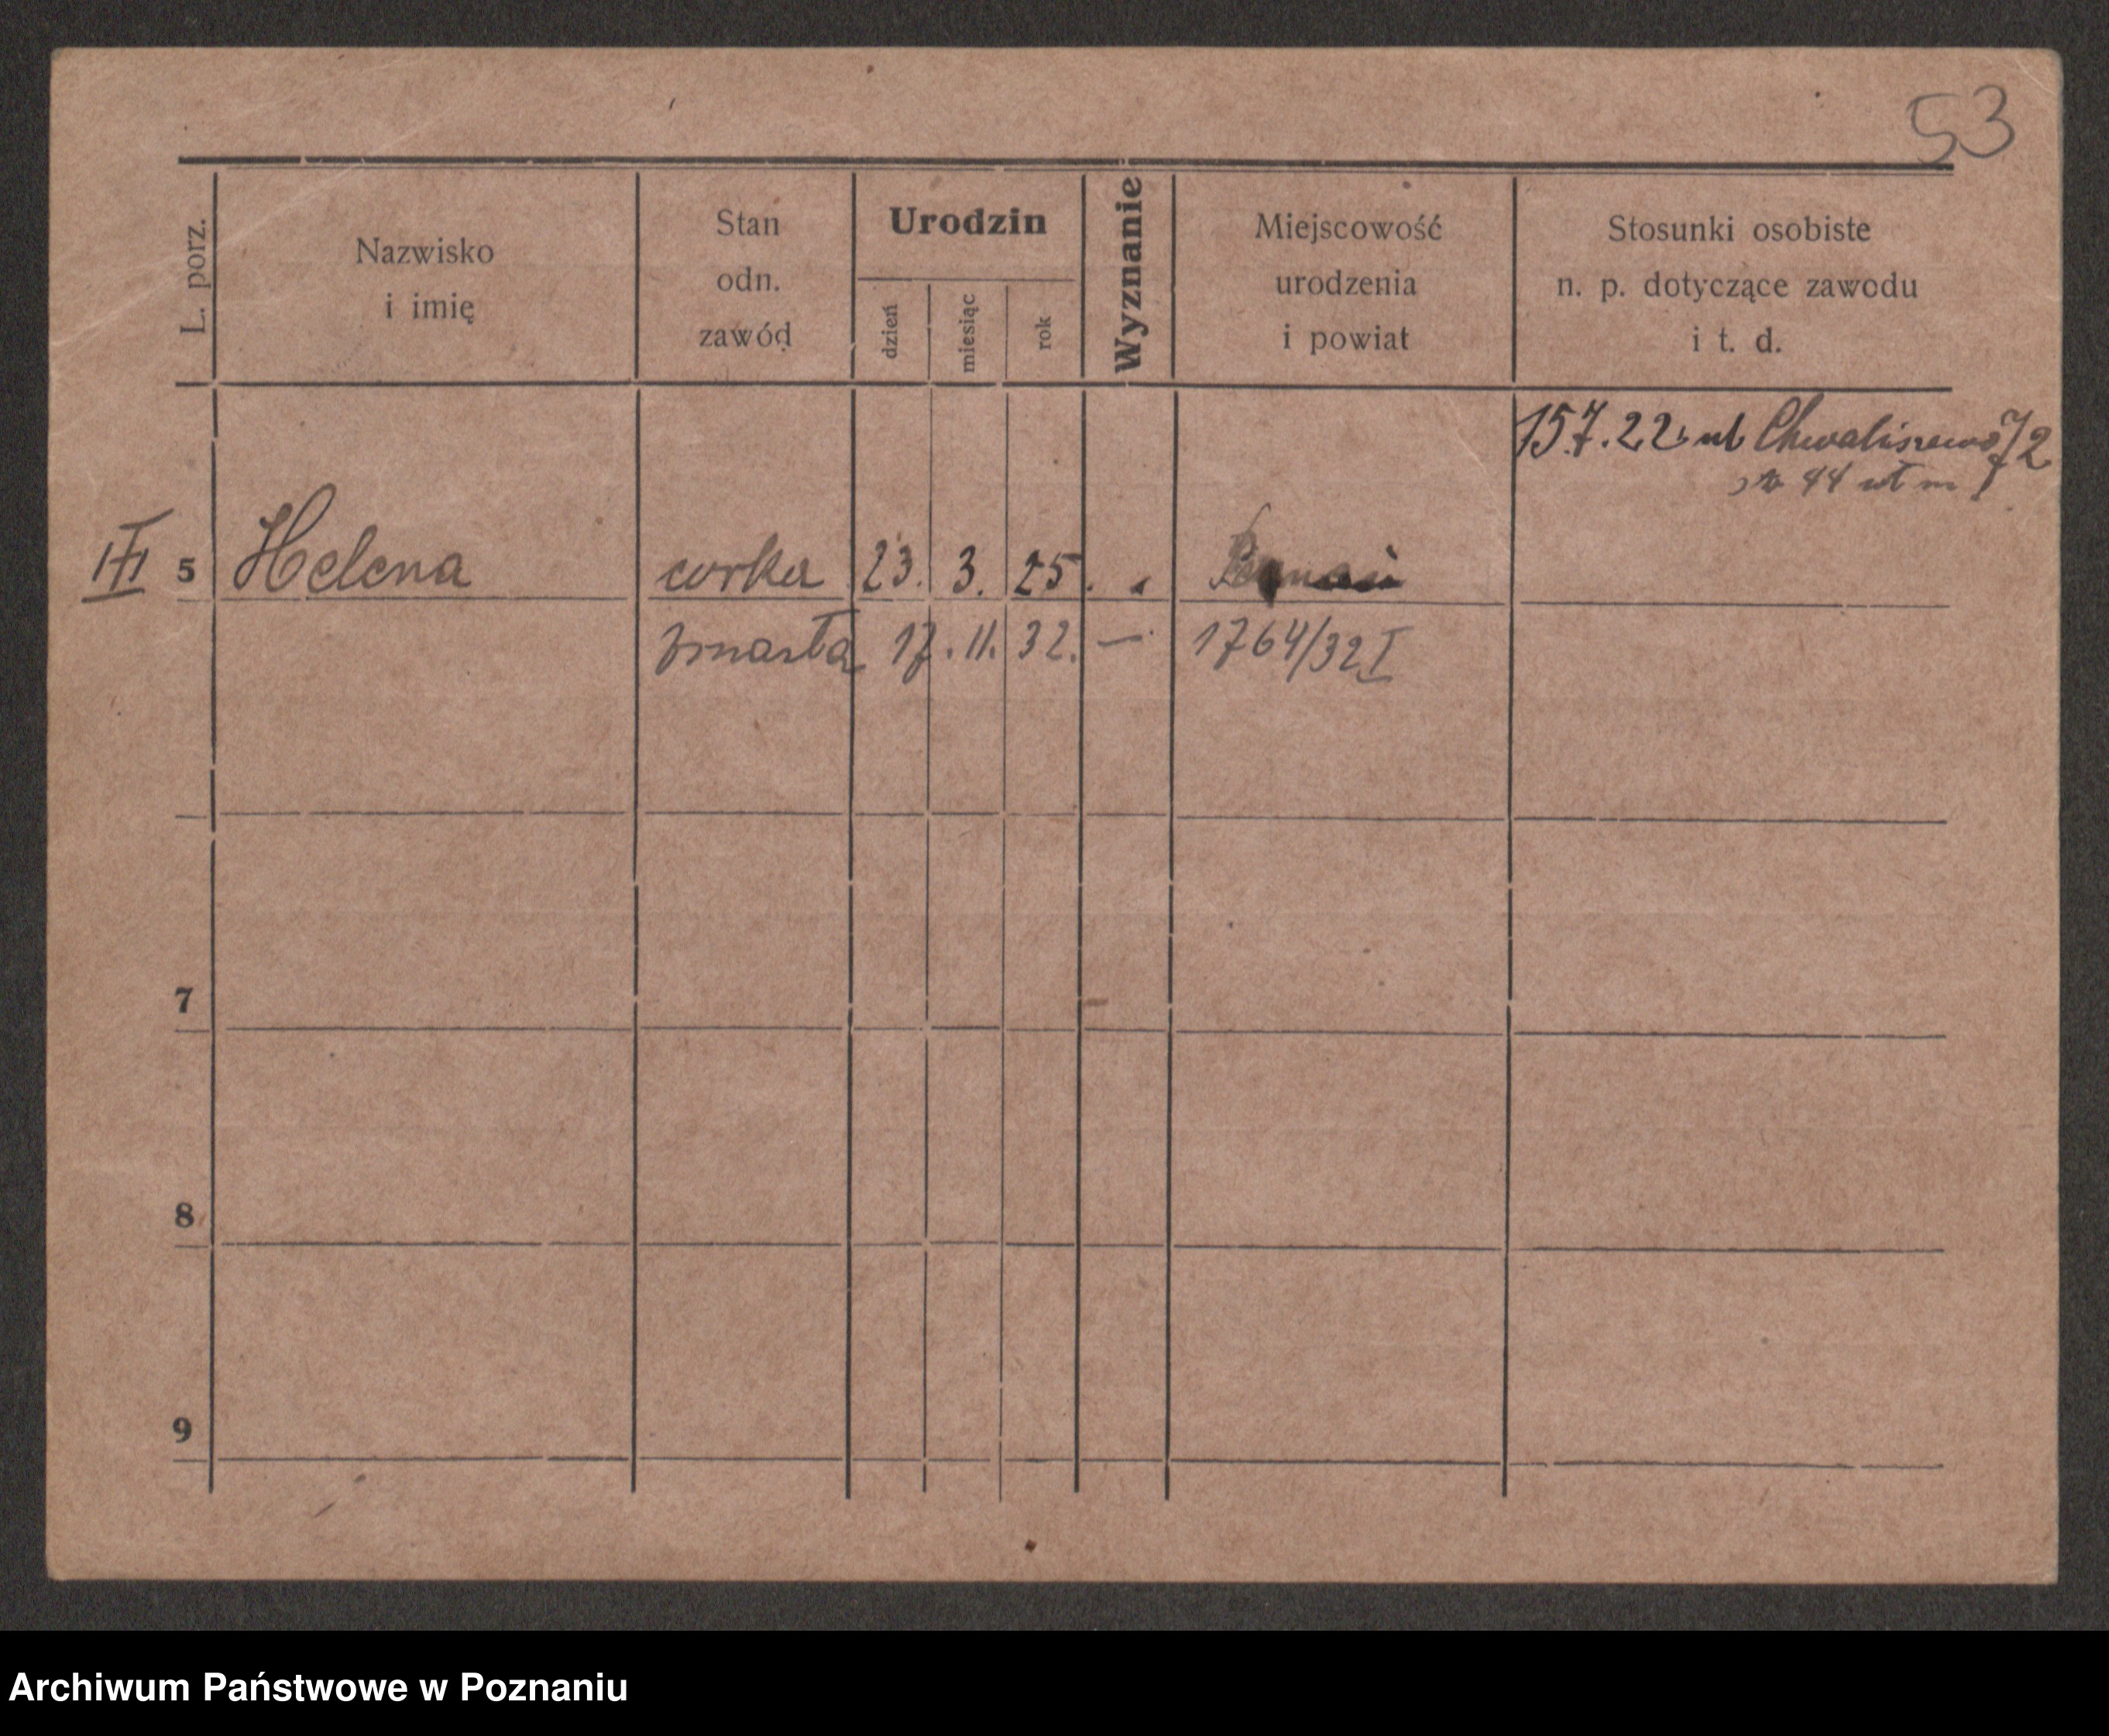 53
L. porz.
Nazwisko
i imię
Stan
odn.
zawód
Urodzin
dzień
miesiąc
rok
Wyznanie
Miejscowość
urodzenia
i powiat
Stosunki osobiste
n. p. dotyczące zawodu
i t. d.
15.7.22 ul Chwaliszewo 72
44
III 5 Helena corka 23. 3. 25.
zmarła 17. 11. 32. — 1764/32 I
7
8
9
Archiwum Państwowe w Poznaniu